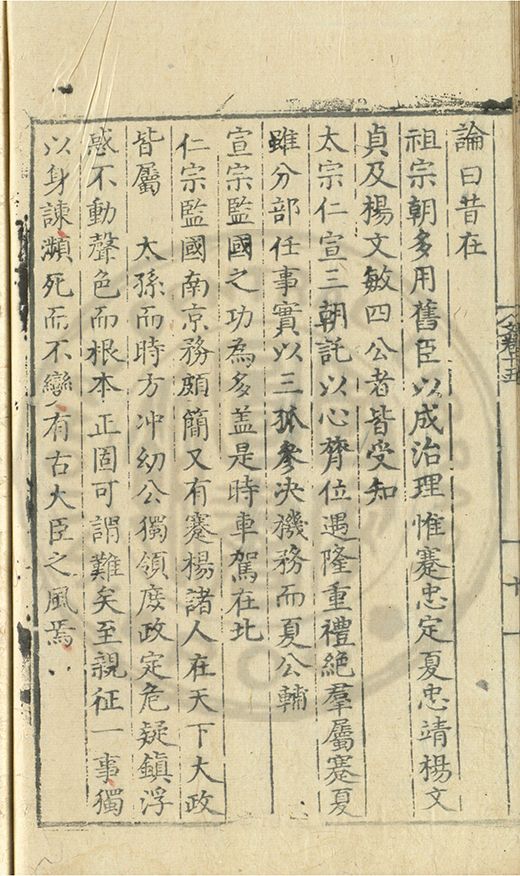 論曰昔在
祖宗朝多用舊臣以成治理惟蹇忠定夏忠靖楊文
貞及楊文敏四公者皆受知
太宗仁宣三朝託以心膂位遇隆重禮絶羣屬蹇夏
雖分部任事實以三孤參决機務而夏公輔
宣宗監國之功為多盖是時車駕在北
仁宗監國南京務頗簡又有蹇楊諸人在天下大政
皆屬 太孫而時方冲幼公獨領庶政定危疑鎮浮
惑不動聲色而根本正固可謂難矣至親征一事獨
以身諫瀕死而不變有古大臣之風焉
十